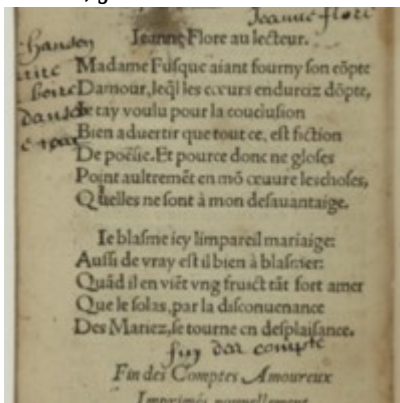 Jeanne flore
Ieanne Flore au lecteur.
Madame Fusque aiant fourny son cõpte
Damour, leq̃l les cœurs endurciz dõpte,
Ie tay voulu pour la conclusion
Bien aduertir que tout ce, est fiction
De poësie. Et pource donc ne gloses
Point aultremẽt en mõ œuure les choses,
Quelles ne sont à mon desauantaige.
Ie blasme icy limpareil mariaige:
Aussi de vray est il bien à blasmer:
Quãd il en viẽt vng fruict tãt fort amer
Que le solas, par la disconuenance
Des Mariez, se tourne en desplaisance.
Fin des Comptes Amoureux
Imprimés nouuellement